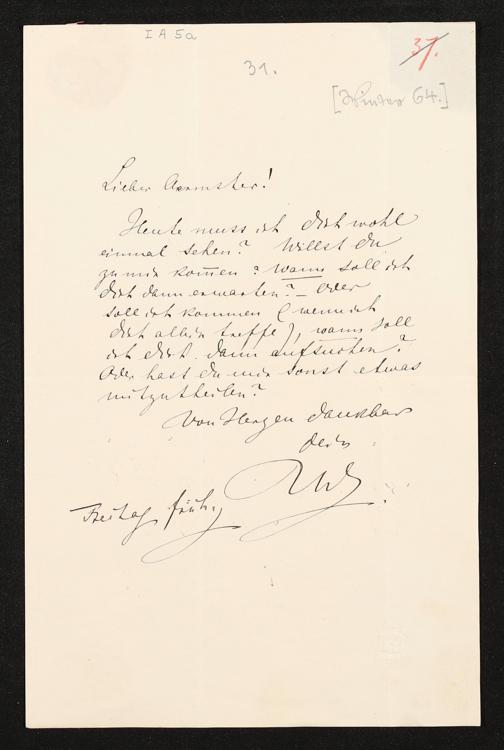 I A 5a
37.
31.
[Winter 64.]
Lieber Aermster!
Heute muss ich dich wohl
einmal sehen? Willst du
zu mir kom̄en? Wann soll ich
dich dann erwarten? – Oder
soll ich kommen (wenn ich
dich allein treffe), wann soll
ich dich dann aufsuchen?
Oder hast du mir sonst etwas
mitzutheilen?
Von Herzen dankbar
Dein
RW
Freitag früh.